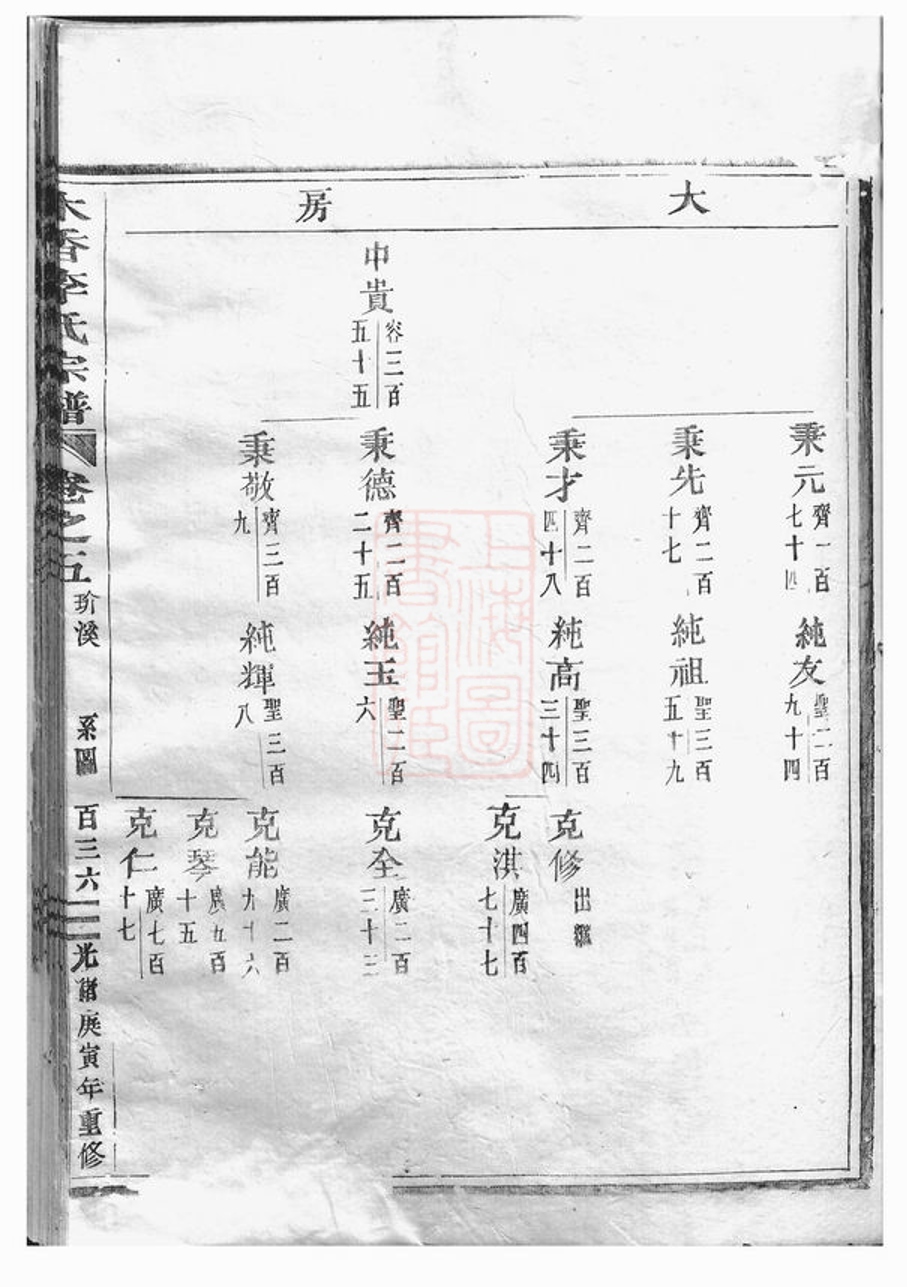 大房
秉元
齊一百七十四
純友
聖二百九十四
秉先
齊二百十七
純祖
聖三百五十九
秉才
齊二百四十八
純高
聖三百三十四
克修
出繼
克淇
廣四百七十七
中貴
容三百五十五
秉德
齊二百二十五
純玉
聖二百六
克全
廣二百三十三
秉敬
齊三百九
純輝
聖三百八
克能
廣二百九十六
克琴
廣五百十五
克仁
廣七百十七
木香李氏宗譜
卷之五
玠溪
系圖
百三六
光緒庚寅年重修
上海圖書館臧